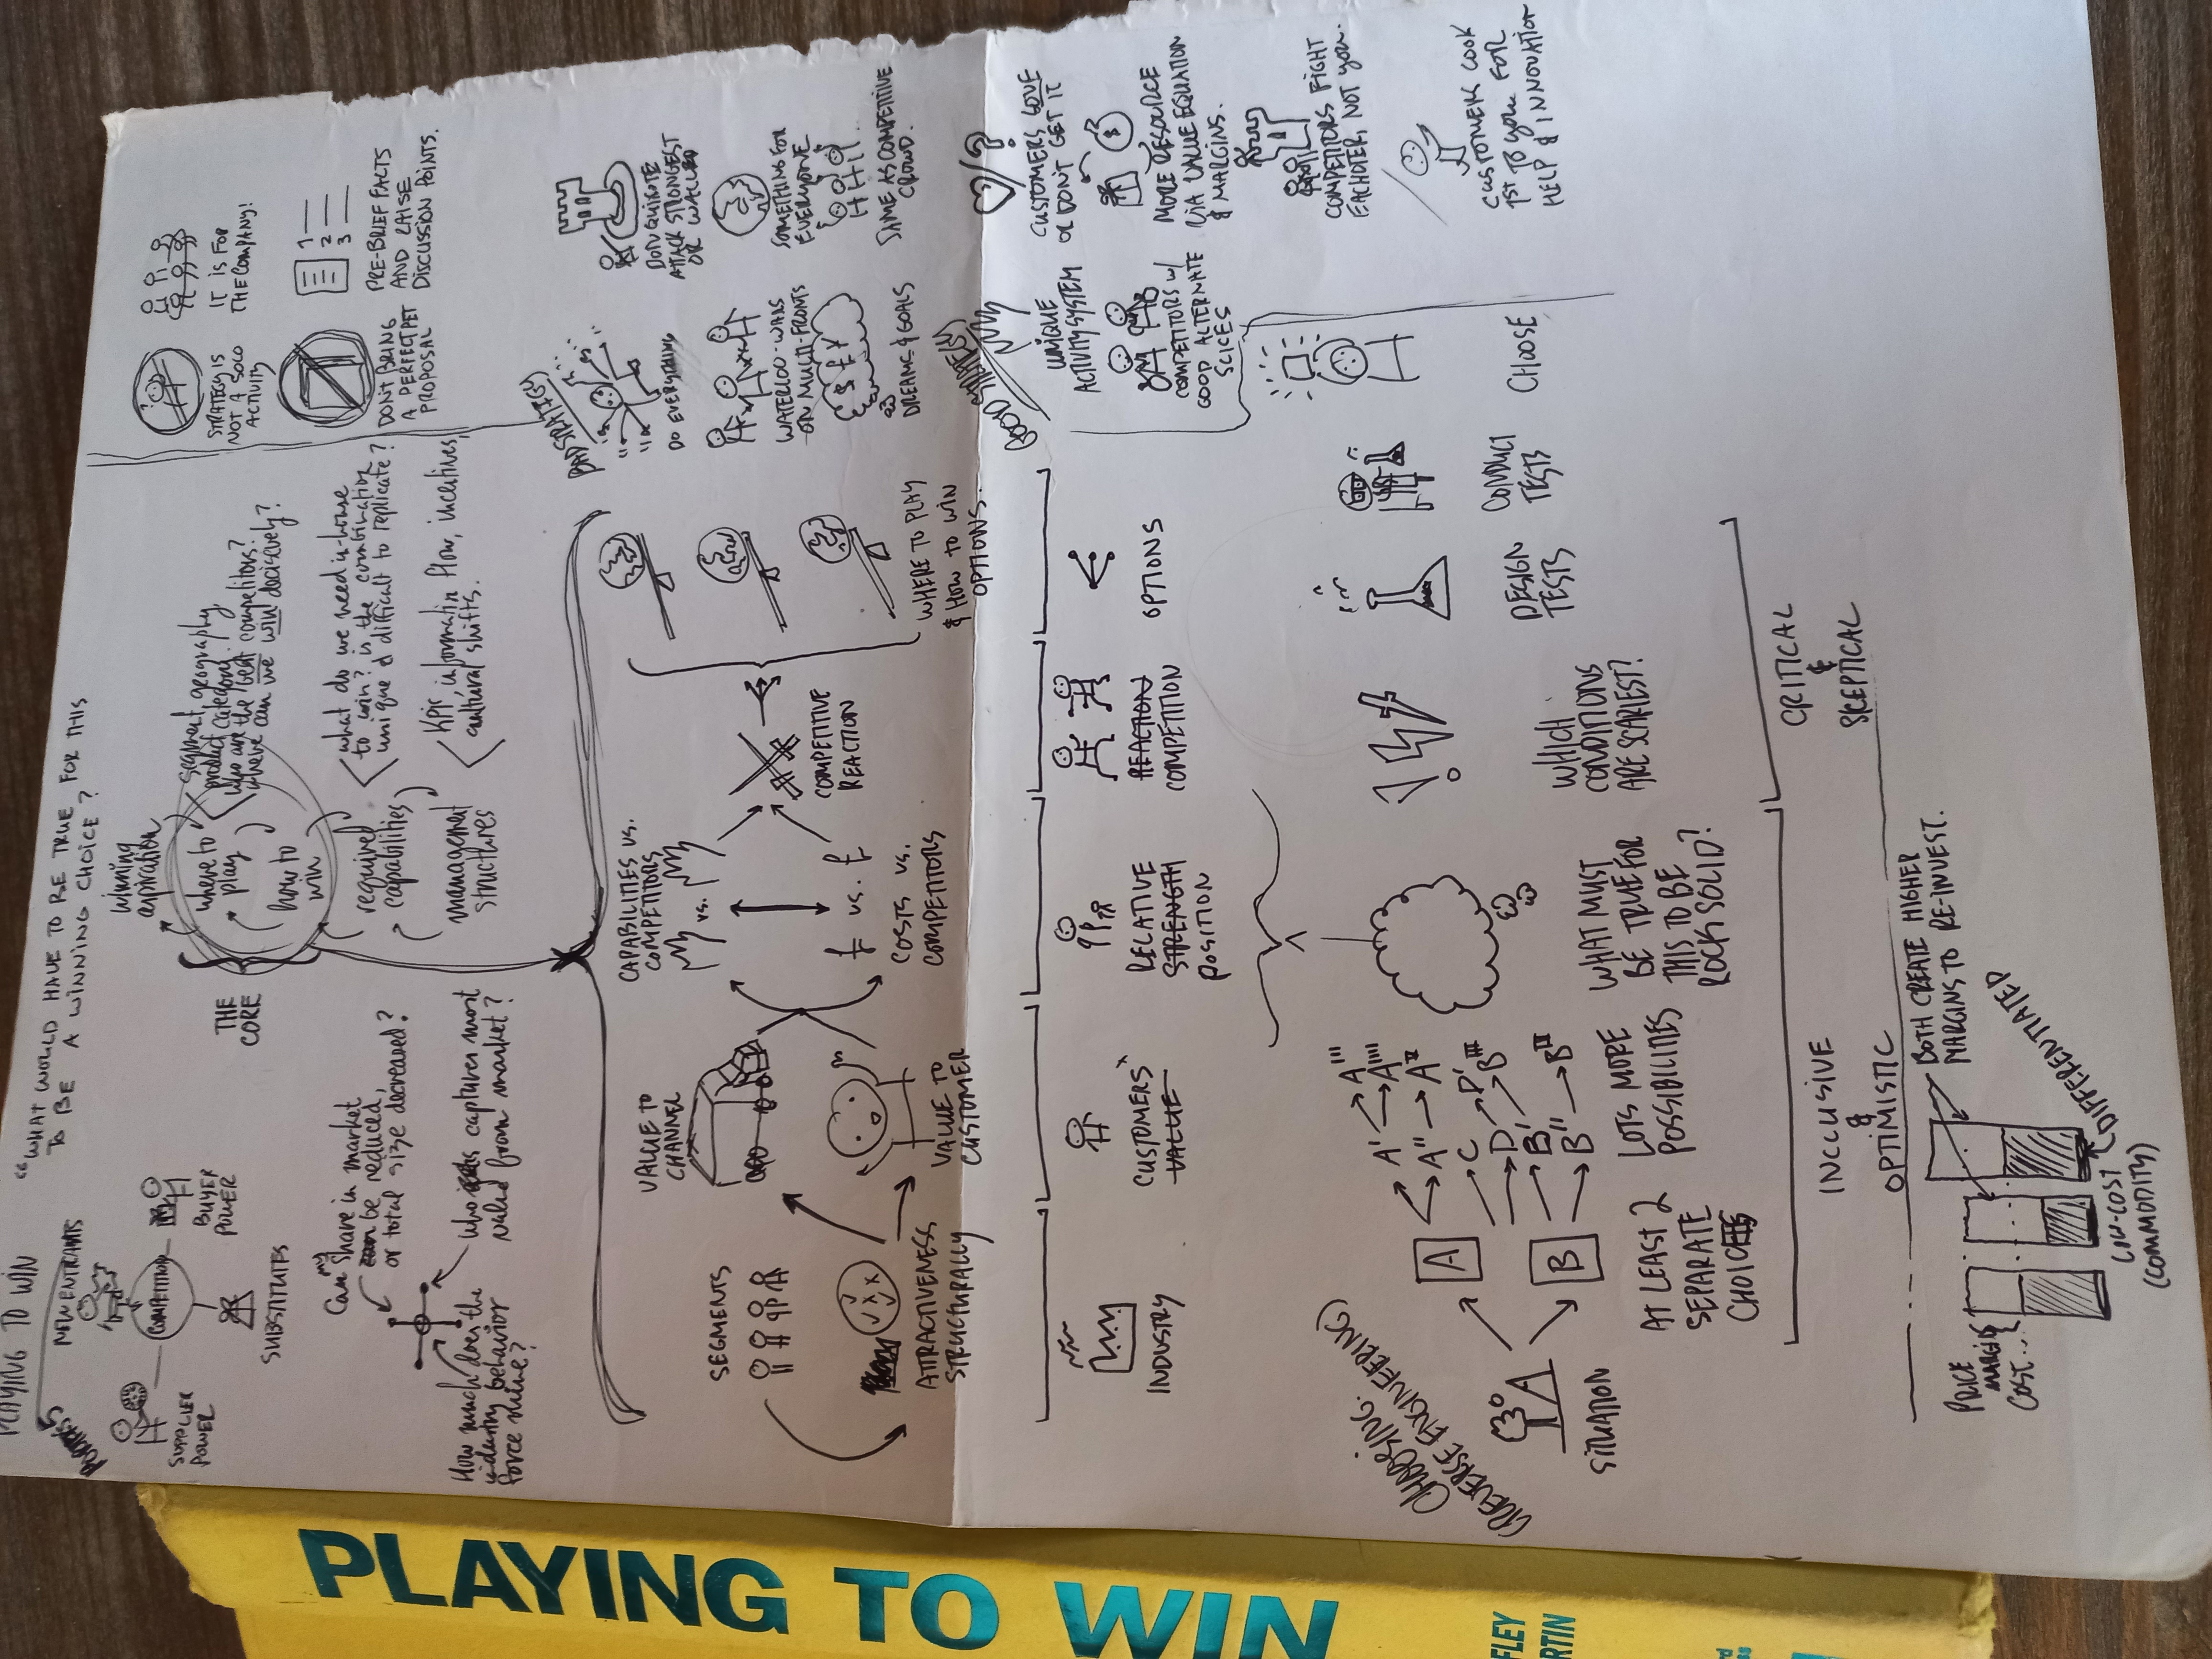 PLAYING TO WIN
"WHAT WOULD HAVE TO BE TRUE FOR THIS
TO BE A WINNING CHOICE?
NEW ENTRANTS
COMPETITION
SUPPLIER
POWER
BUYER
POWER
SUBSTITUTES
Can my share in market
be reduced,
or total size decreased?
who captures most
value from market?
How much does the
industry behavior
force mine?
THE
CORE
winning
aspiration
where to
play
how to
win
required
capabilities
management
structures
segment, geography
product category.
who are the best competitors?
where can we win decisively?
what do we need in-house
to win? is the combination
unique & difficult to replicate?
KPIs, information flow, incentives,
cultural shifts.
STRATEGY IS
NOT A SOLO
ACTIVITY
IT IS FOR
THE COMPANY!
DON'T BRING
A PERFECT PET
PROPOSAL
1
2
3
PRE-BRIEF FACTS
AND RAISE
DISCUSSION POINTS.
SEGMENTS
ATTRACTIVENESS
STRUCTURALLY
VALUE TO
CHANNEL
VALUE TO
CUSTOMER
CAPABILITIES VS.
COMPETITORS
vs.
£ vs. £
COSTS VS.
COMPETITORS
COMPETITIVE
REACTION
WHERE TO PLAY
& HOW TO WIN
OPTIONS.
BAD STRATEGY
DO EVERYTHING
DON QUIXOTE
ATTACK STRONGEST
OR WALLED
WATERLOO-WARS
ON MULTI-FRONTS
SOMETHING FOR
EVERYONE
$ £ ¥
DREAMS & GOALS
SAME AS COMPETITIVE
CROWD.
INDUSTRY
CUSTOMERS'
VALUE
RELATIVE
STRENGTH
POSITION
REACTION
COMPETITION
OPTIONS
GOOD STRATEGY
UNIQUE
ACTIVITY SYSTEM
CUSTOMERS LOVE
OR DON'T GET IT
COMPETITORS W/
GOOD ALTERNATE
SLICES
$
MORE RESOURCE
VIA VALUE EQUATION
& MARGINS.
COMPETITORS FIGHT
EACHOTER, NOT you.
CUSTOMERS LOOK
1ST TO you FOR
HELP & INNOVATION
CHOOSING:
(REVERSE ENGINEERING)
SITUATION
A
B
AT LEAST 2
SEPARATE
CHOICES
A' A'''
A''
C
D D'
B'
B''
LOTS MORE
POSSIBILITIES
WHAT MUST
BE TRUE FOR
THIS TO BE
ROCK SOLID?
WHICH
CONDITIONS
ARE SCARIEST?
DESIGN
TESTS
CONDUCT
TESTS
CHOOSE
INCLUSIVE
&
OPTIMISTIC
CRITICAL
&
SKEPTICAL
PRICE
MARGIN
COST...
BOTH CREATE HIGHER
MARGINS TO RE-INVEST.
DIFFERENTIATED
LOW-COST
(COMMODITY)
PLAYING TO WIN
FLEY
RTIN